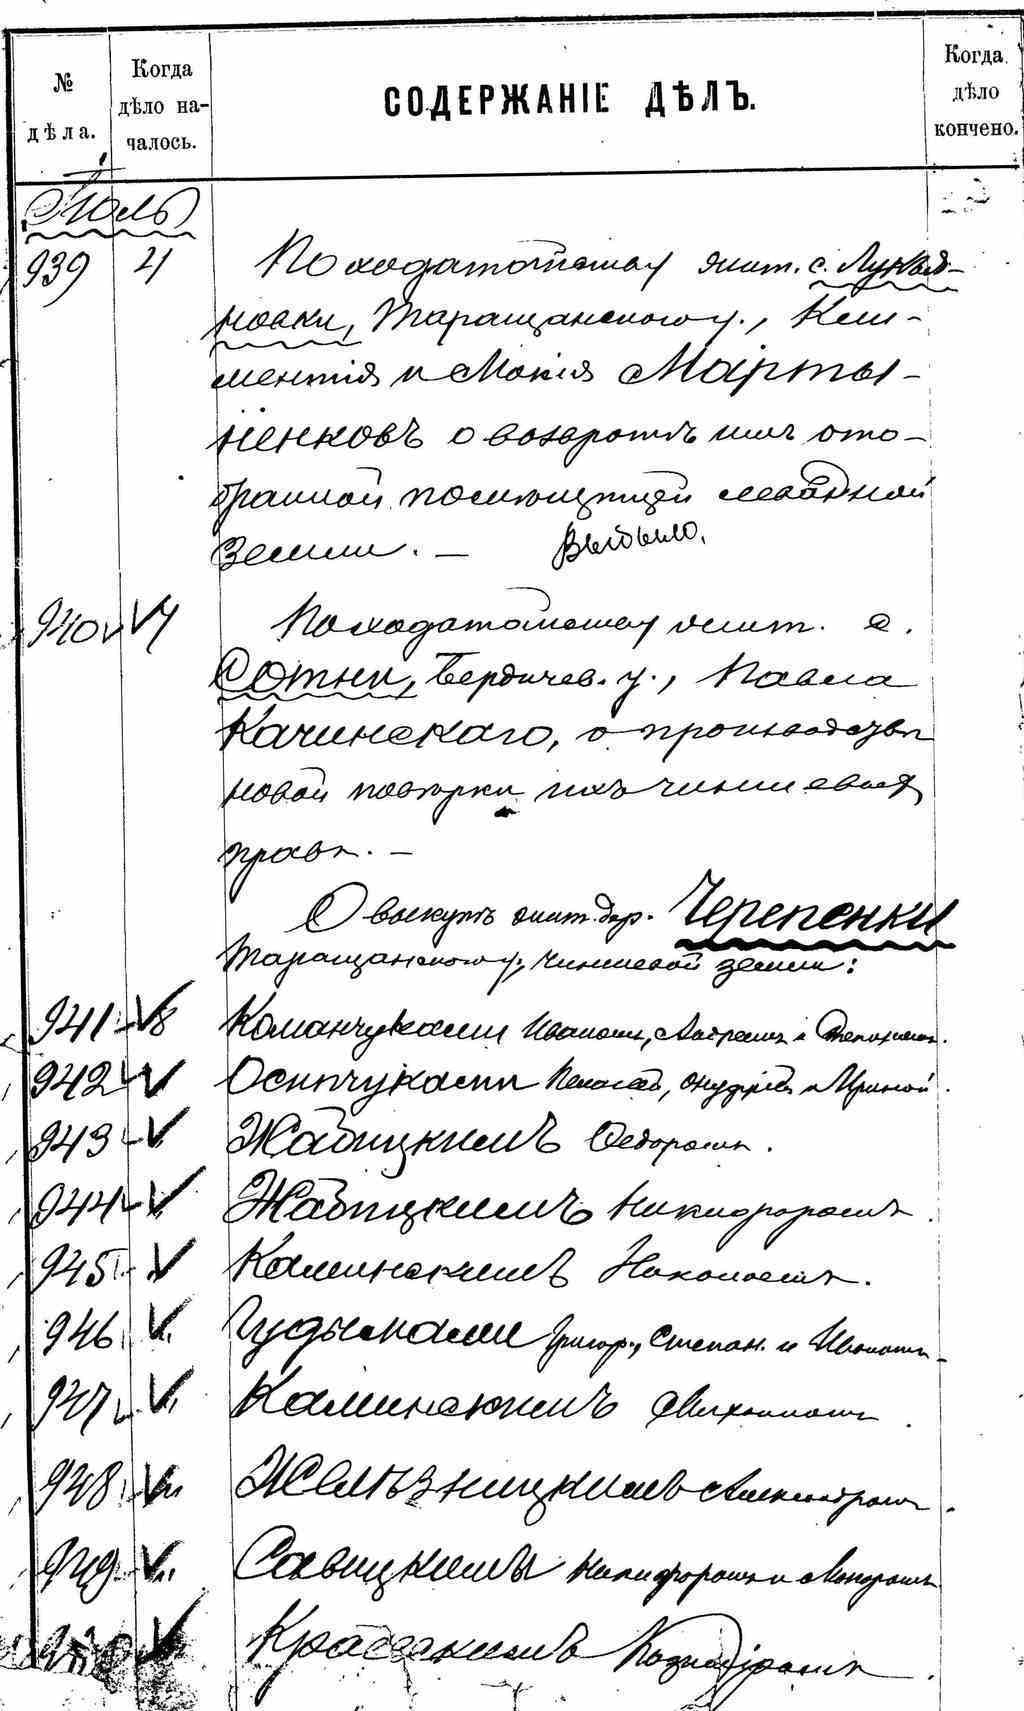 № дѣла.
Когда дѣло началось.
СОДЕРЖАНІЕ ДѢЛЪ.
Когда дѣло кончено.
Іюль
939 4 По ходатайству жит. с. Лукья-
новки, Таращанскаго у., Кли-
ментія и Мокія Марты-
ненковъ о возвратѣ имъ ото-
бранной помѣщицей левадной
земли. — Выбыло.
940 7 По ходатайству жит. с.
Сотни, Бердичев. у., Павла
Качинскаго, о производствѣ
новой повѣрки ихъ чиншевыхъ
правъ. —
О выкупѣ жит. дер. Черепенки
Таращанскаго у., чиншевой земли:
941 8 Команчуками Иваномъ, Андреемъ и Степаномъ.
942 Осипчуками Пелагеей, и Ириной.
943 Жабицкимъ Федоромъ.
944 Жабицкимъ Никифоромъ.
945 Каминскимъ Николаемъ.
946 Гудымами Григор., Степан. и Иваномъ
947 Каминскимъ Михаиломъ.
948 Желѣзницкимъ Александромъ.
949 Савицкимъ Никифоромъ и
Красскимъ